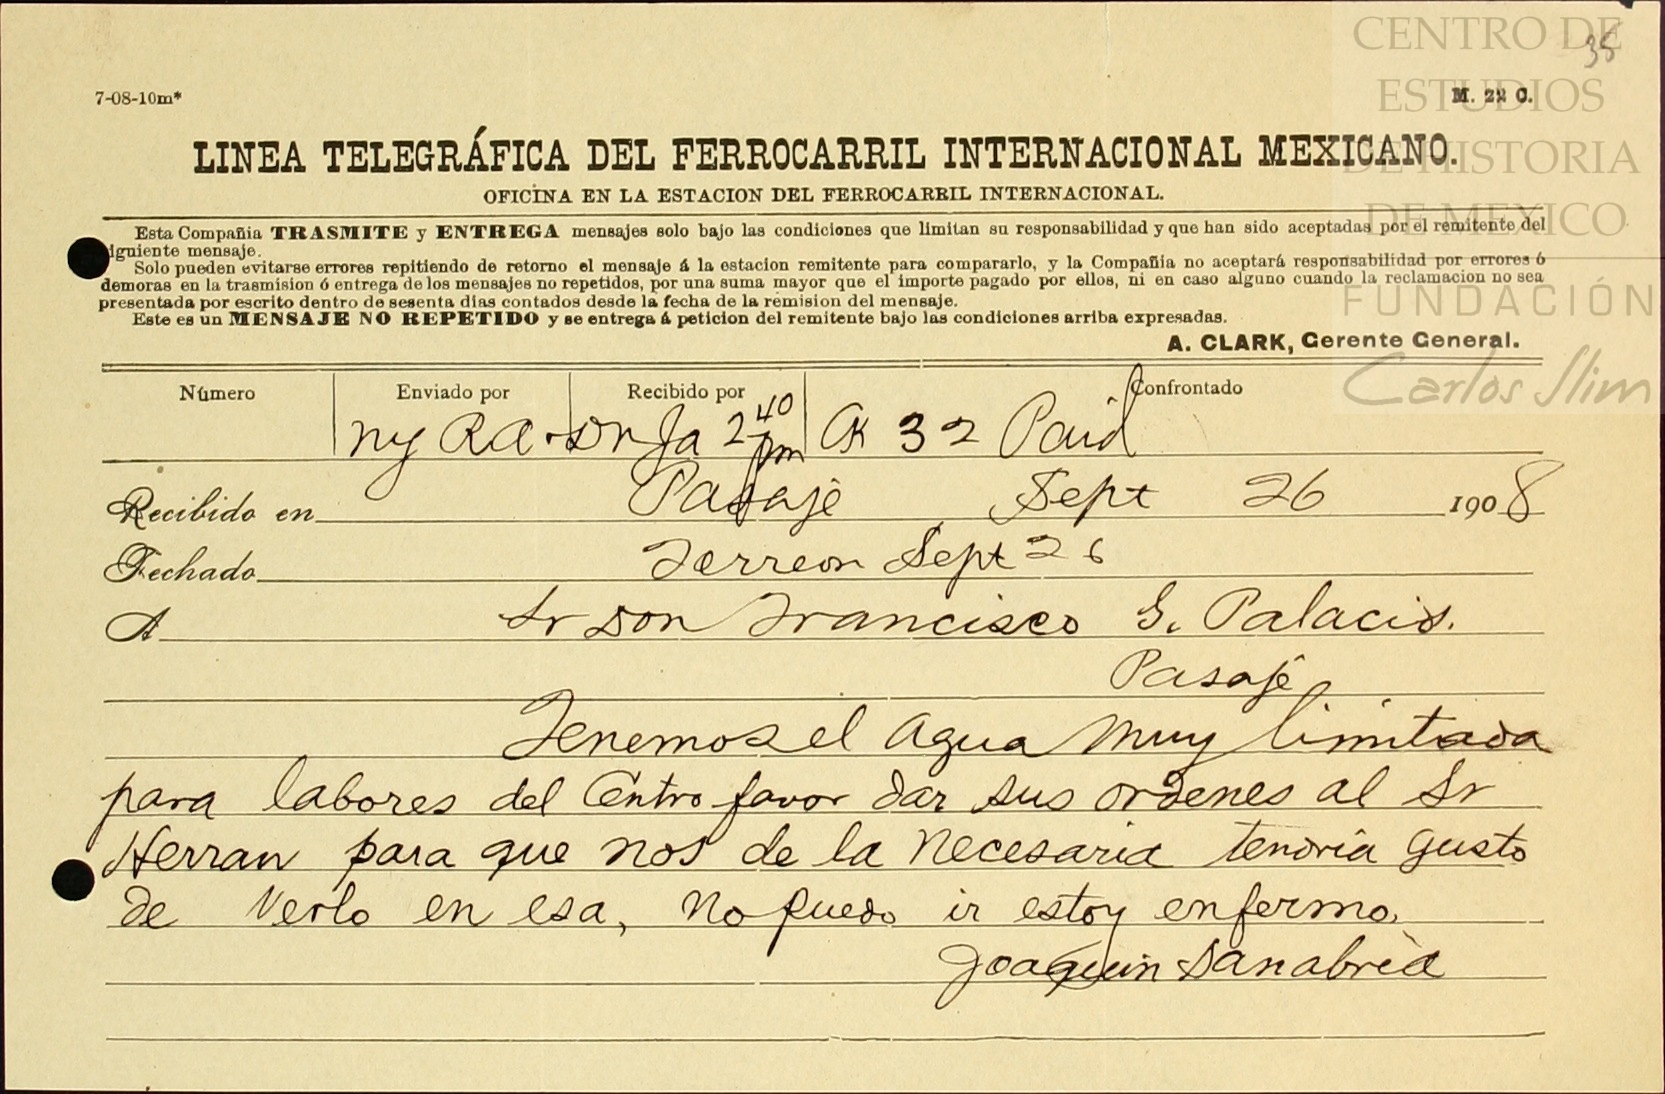 CENTRO DE
ESTUDIOS
DE HISTORIA
DE MEXICO
FUNDACIÓN
Carlos Slim
35
7-08-10m*
M. 22 C.
LINEA TELEGRÁFICA DEL FERROCARRIL INTERNACIONAL MEXICANO.
OFICINA EN LA ESTACION DEL FERROCARRIL INTERNACIONAL.
Esta Compañia TRASMITE y ENTREGA mensajes solo bajo las condiciones que limitan su responsabilidad y que han sido aceptadas por el remitente del
iguiente mensaje.
Solo pueden evitarse errores repitiendo de retorno el mensaje á la estacion remitente para compararlo, y la Compañia no aceptará responsabilidad por errores ó
demoras en la trasmision ó entrega de los mensajes no repetidos, por una suma mayor que el importe pagado por ellos, ni en caso alguno cuando la reclamacion no sea
presentada por escrito dentro de sesenta dias contados desde la fecha de la remision del mensaje.
Este es un MENSAJE NO REPETIDO y se entrega á peticion del remitente bajo las condiciones arriba expresadas.
A. CLARK, Gerente General.
Número Enviado por Recibido por Confrontado
ny Ra 2 40 pm 32 Paid
Recibido en Pasaje Sept 26 1908
Fechado Torreon Sept 26
A Sr Don Francisco G. Palacio.
Pasaje
Tenemos el agua muy limitada
para labores del Centro favor dar sus ordenes al Sr
Herran para que nos de la necesaria tendria gusto
de verlo en esa, no puedo ir estoy enfermo.
Joaquin Sanabria